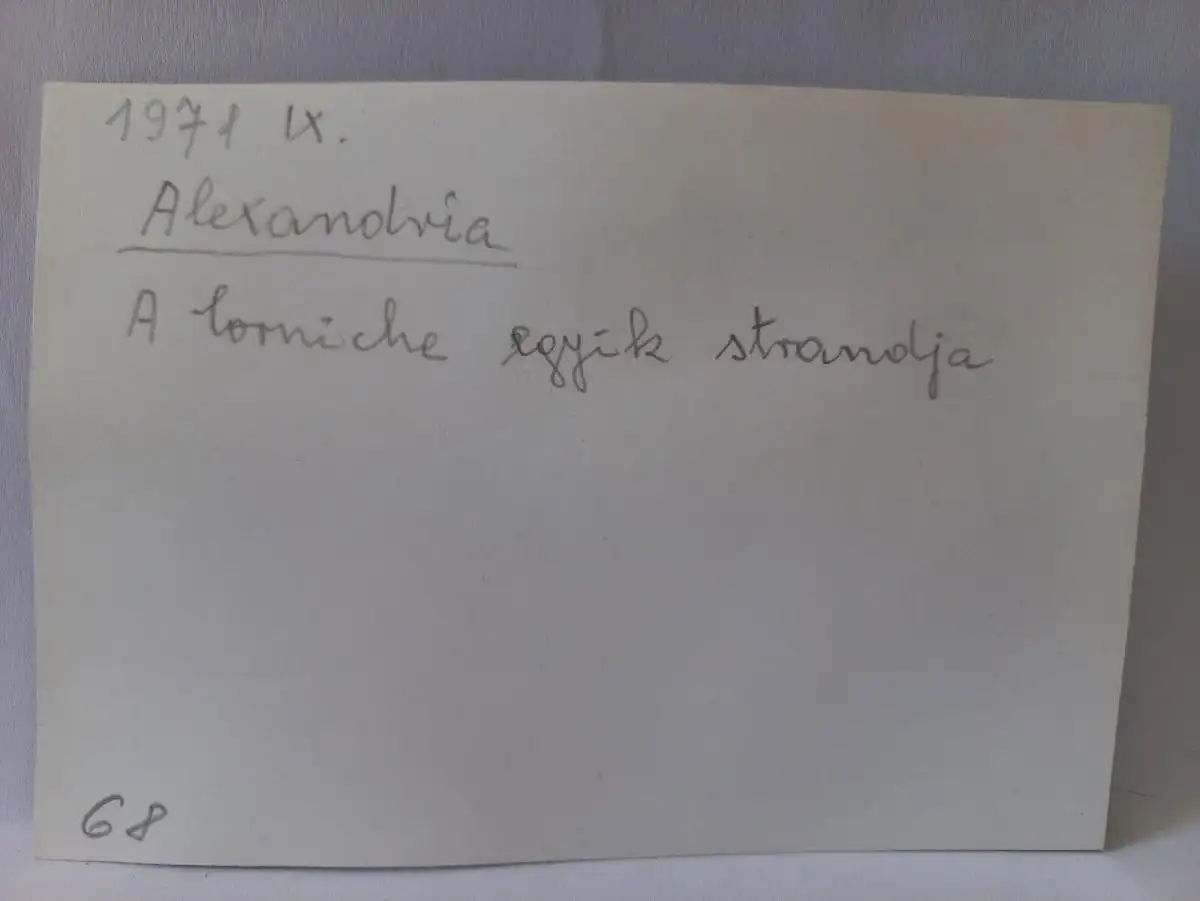 1971 IX.
Alexandria
A corniche egyik strandja
68